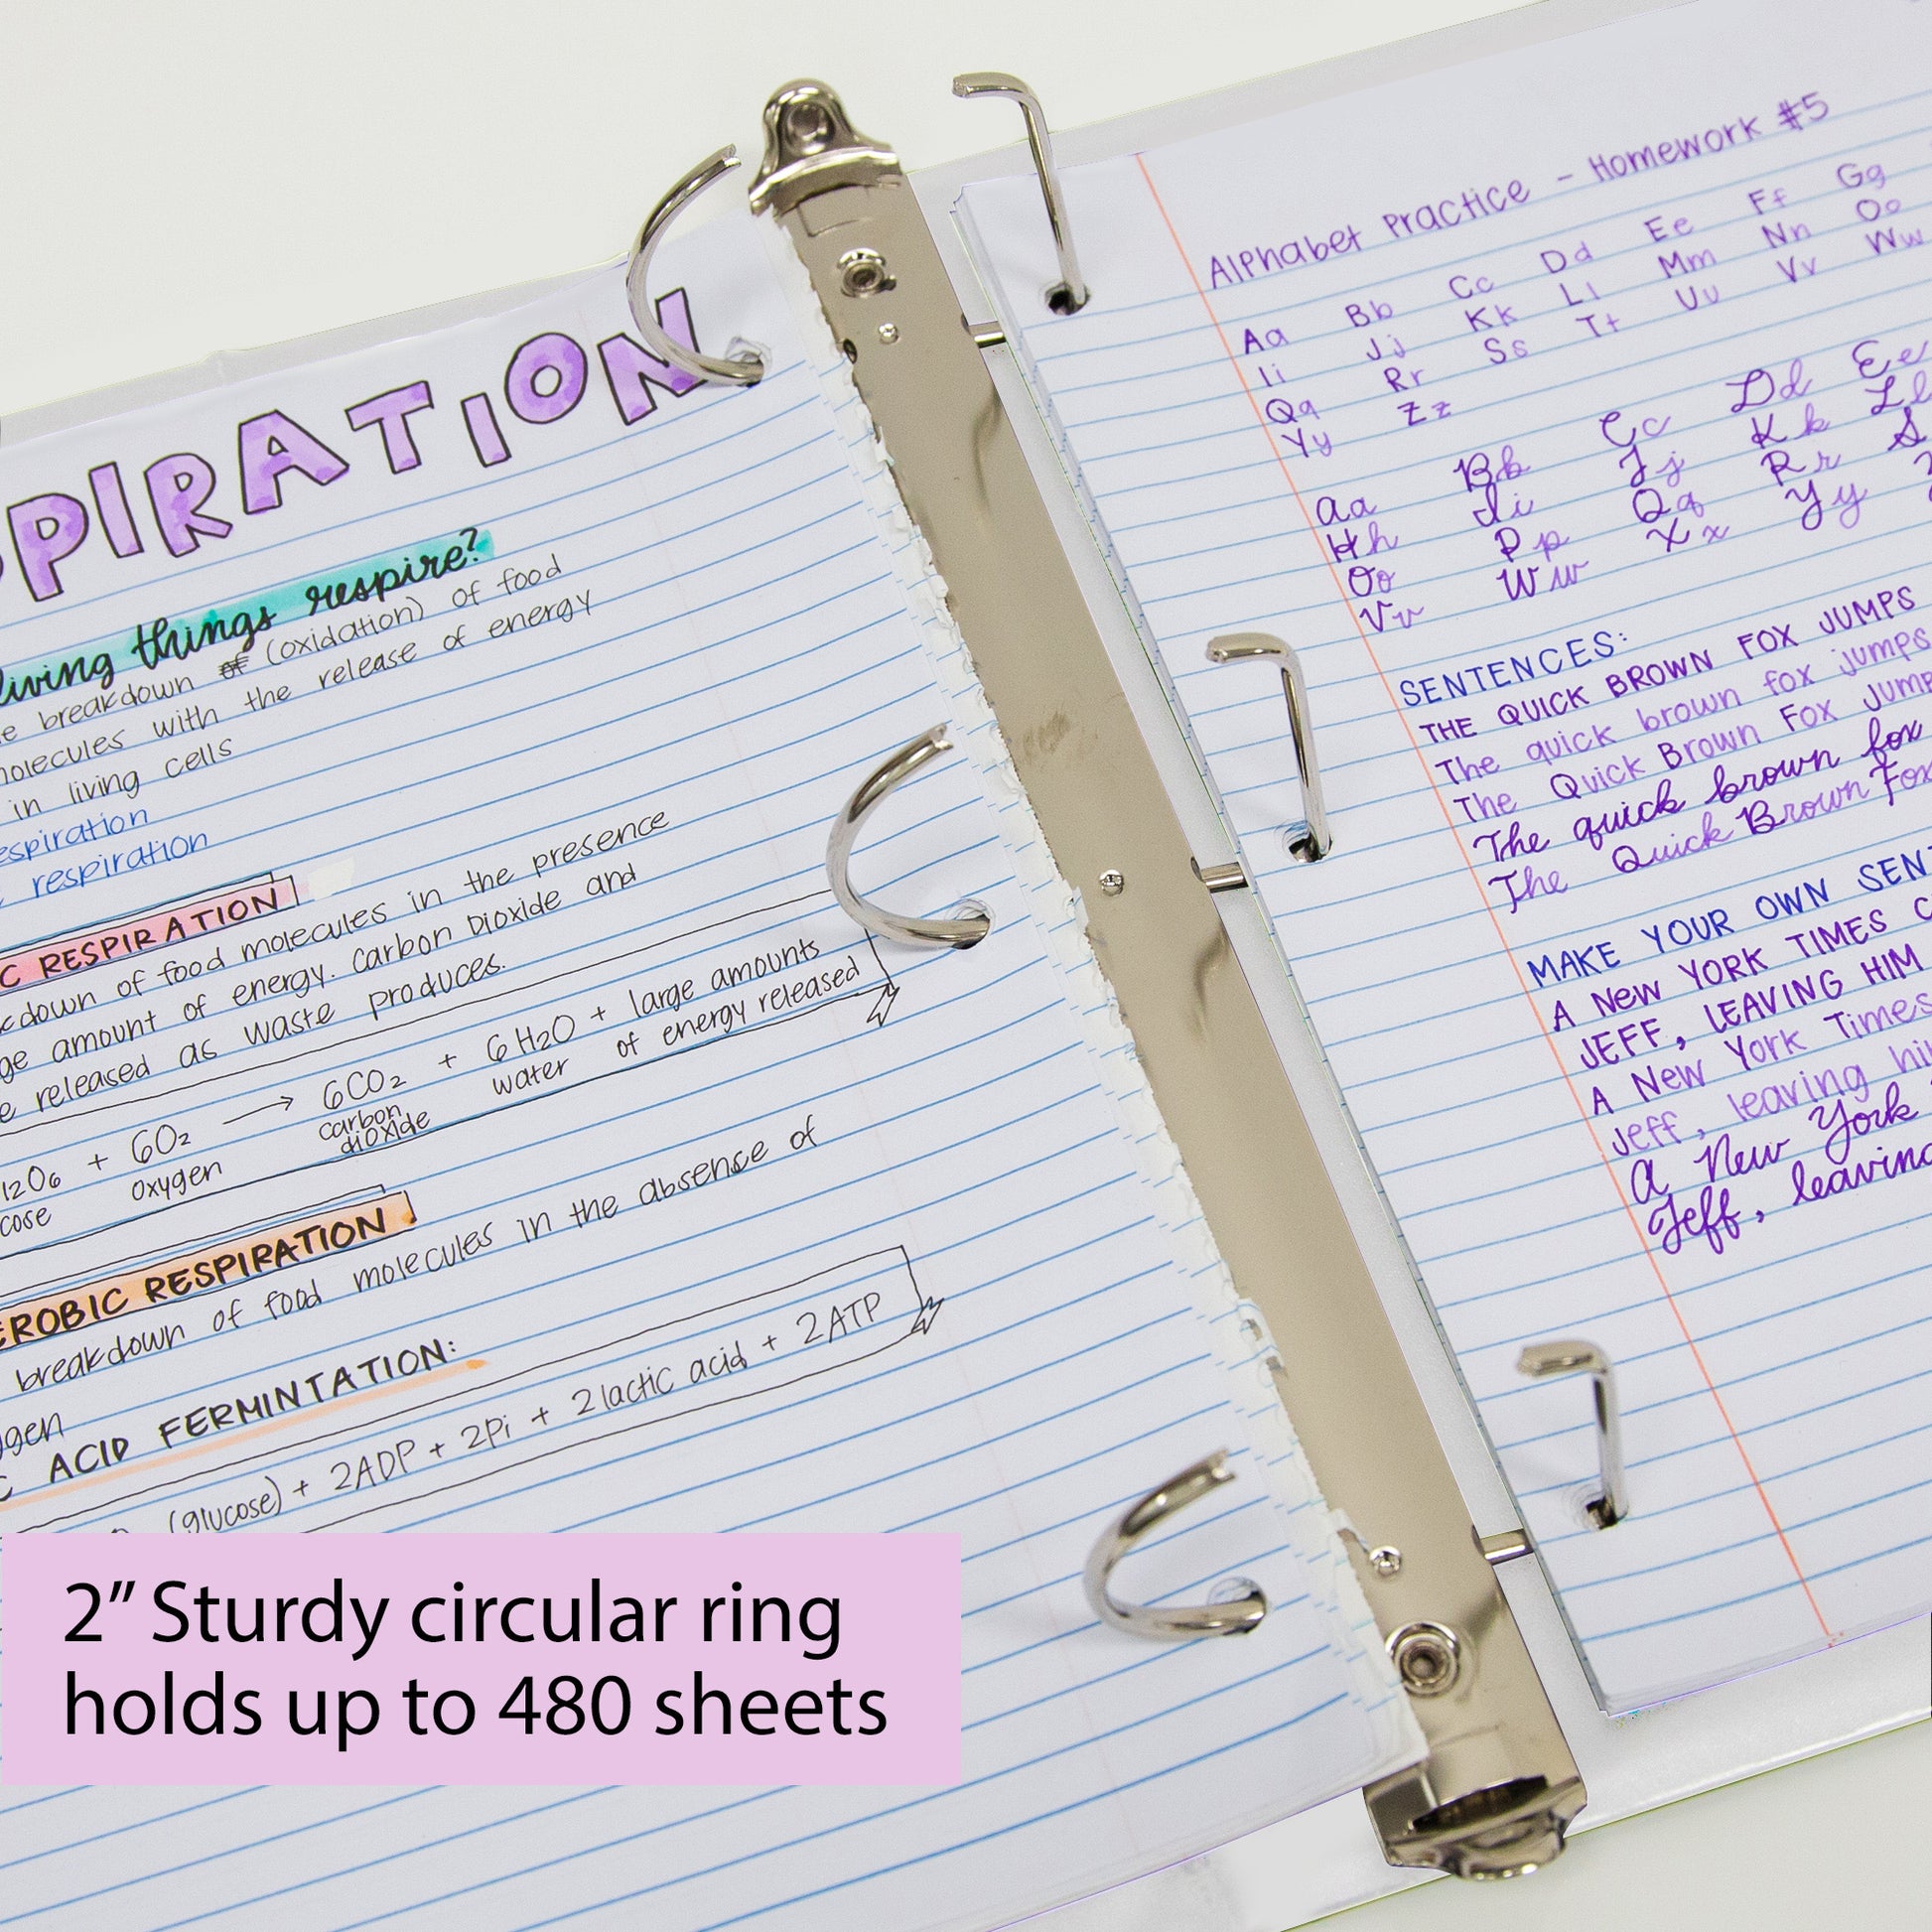 PIRATION
living things respire?
breakdown of (oxidation) of food
molecules with the release of energy
in living cells
respiration
respiration
C RESPIRATION
down of food molecules in the presence
amount of energy. Carbon Dioxide and
released as waste produces.
12O6 + 6O2 → 6CO2 + 6H2O + large amounts
cose oxygen carbon dioxide water of energy released
EROBIC RESPIRATION
breakdown of food molecules in the absence of
ygen
C ACID FERMINTATION:
(glucose) + 2ADP + 2Pi + 2 lactic acid + 2ATP
Alphabet Practice - Homework #5
Aa Bb Cc Dd Ee Ff Gg
Ii Jj Kk Ll Mm Nn Oo
Qq Rr Ss Tt Uu Vv Ww
Yy Zz
Aa Bb Cc Dd Ee
Hh Ii Jj Kk Ll
Oo Pp Qq Rr S
Vv Ww Xx Yy
SENTENCES:
THE QUICK BROWN FOX JUMPS
The quick brown fox jumps
The Quick Brown Fox Jump
The quick brown fox
The Quick Brown Fox
MAKE YOUR OWN SENT
A New YORK TIMES C
JEFF, LEAVING HIM
A New York Times
Jeff, leaving hi
A New York
Jeff, leaving
2” Sturdy circular ring
holds up to 480 sheets